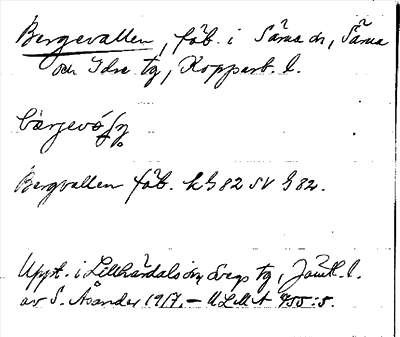 Bergevallen, fäb. i Särna sn, Särna
och Idre tg, Kopparb. l.
Bergvallen fäb. k G 82 SV G 82.
Uppt. i Lillhärdals sn Svegs tg, Jämtl. l.
av S. Åsander 1917. – ULMA 455:5.